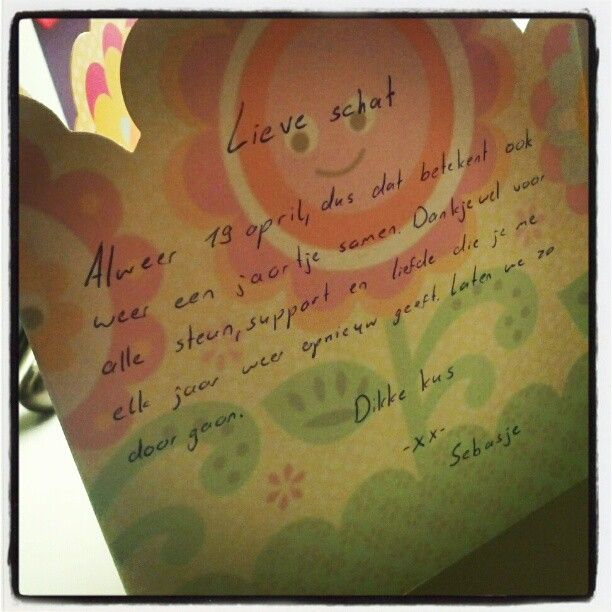 Lieve schat
Alweer 19 april, dus dat betekent ook
weer een jaartje samen. Dankjewel voor
alle steun, support en liefde die je me
elk jaar weer opnieuw geeft. Laten we zo
door gaan.
Dikke kus
-xx-
Sebasje